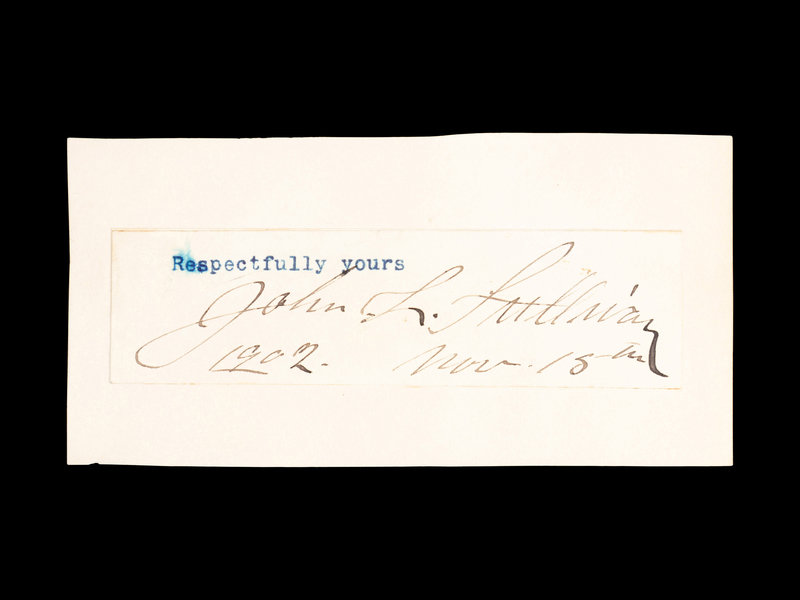 Respectfully yours
John L. Sullivan
1902. Nov. 18th